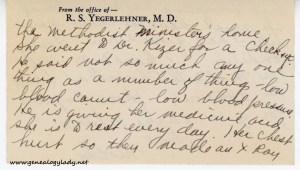 From the office of—
R. S. YEGERLEHNER, M. D.
the Methodist Minister's home
She went to Dr. Kizer for a Checkup
He said not so much any one
thing as a number of things - low
blood count - low blood pressure
He is giving her medicine and
she is to rest every day. Her chest
hurt so they made an X Ray
www.genealogylady.net